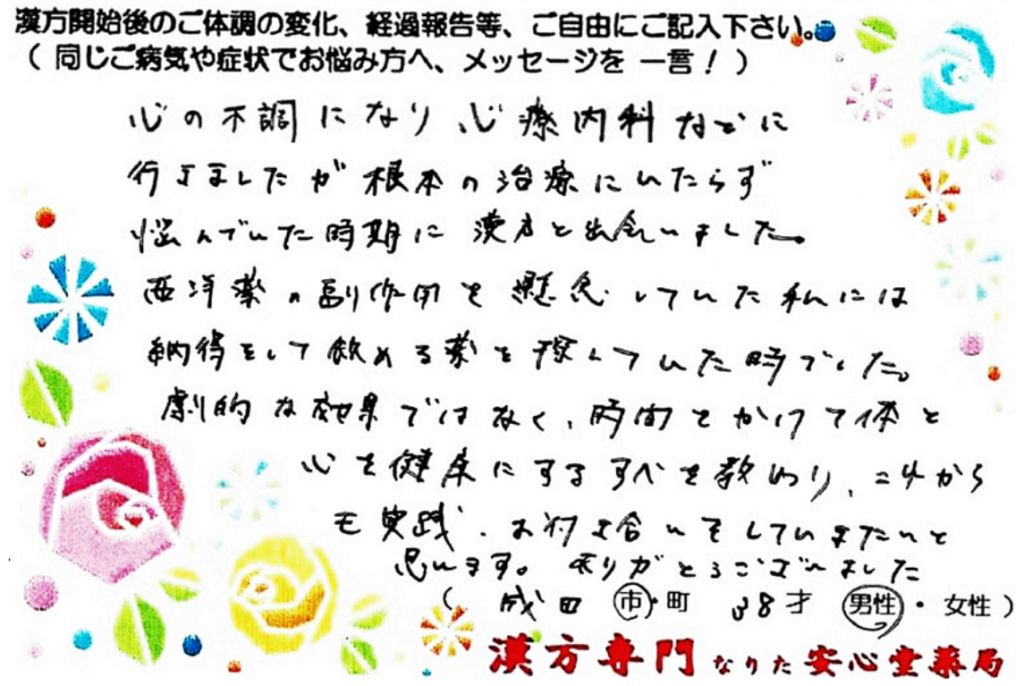 漢方開始後のご体調の変化、経過報告等、ご自由にご記入下さい。
（ 同じご病気や症状でお悩み方へ、メッセージを 一言！ ）
心の不調になり、心療内科などに
行きましたが根本の治療にいたらず
悩んでいた時期に漢方と出会いました。
西洋薬の副作用を懸念していた私には
納得をして飲める薬を探していた時でした。
劇的な効果ではなく、時間をかけて体と
心を健康にするすべを教わり、これから
も実践、お付き合いをしていきたいと
思います。ありがとうございました
（ 成田 市・町 38才 男性・女性 ）
漢方専門 なりた 安心堂薬局